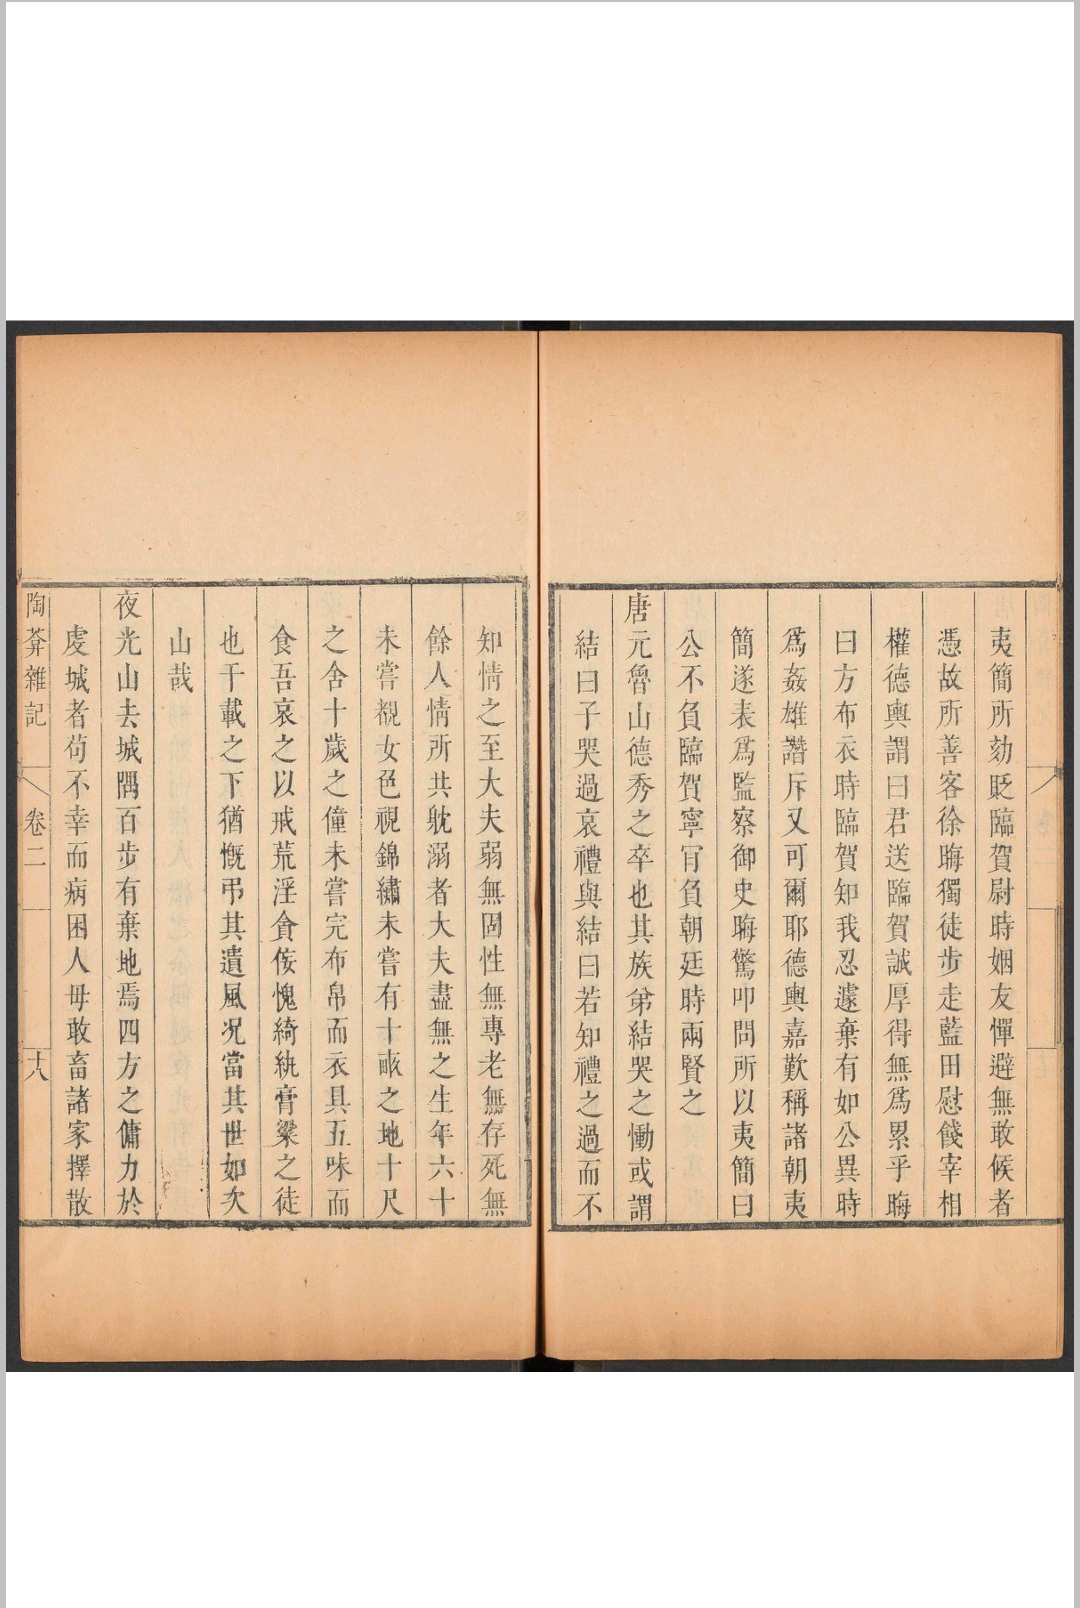 夷簡所劾貶臨賀尉時姻友憚避無敢候者
憑故所善客徐晦獨徒步走藍田慰餞宰相
權德輿謂曰君送臨賀誠厚得無爲累乎晦
曰方布衣時臨賀知我忍遽棄有如公異時
爲姦雄譖斥又可爾耶德輿嘉歎稱諸朝夷
簡遂表爲監察御史晦驚叩問所以夷簡曰
公不負臨賀寧肎負朝廷時兩賢之
唐元魯山德秀之卒也其族弟結哭之慟或謂
結曰子哭過哀禮與結曰若知禮之過而不
知情之至大夫弱無固性無專老無存死無
餘人情所共躭溺者大夫盡無之生年六十
未嘗覩女色視錦繡未嘗有十畝之地十尺
之舍十歲之僮未嘗完布帛而衣具五味而
食吾哀之以戒荒淫貪侫愧綺紈膏粱之徒
也千載之下猶慨弔其遺風况當其世如次
山哉
夜光山去城隅百步有棄地焉四方之傭力於
處城者苟不幸而病困人毋敢畜諸家擇散
陶莾雜記
卷二
十八